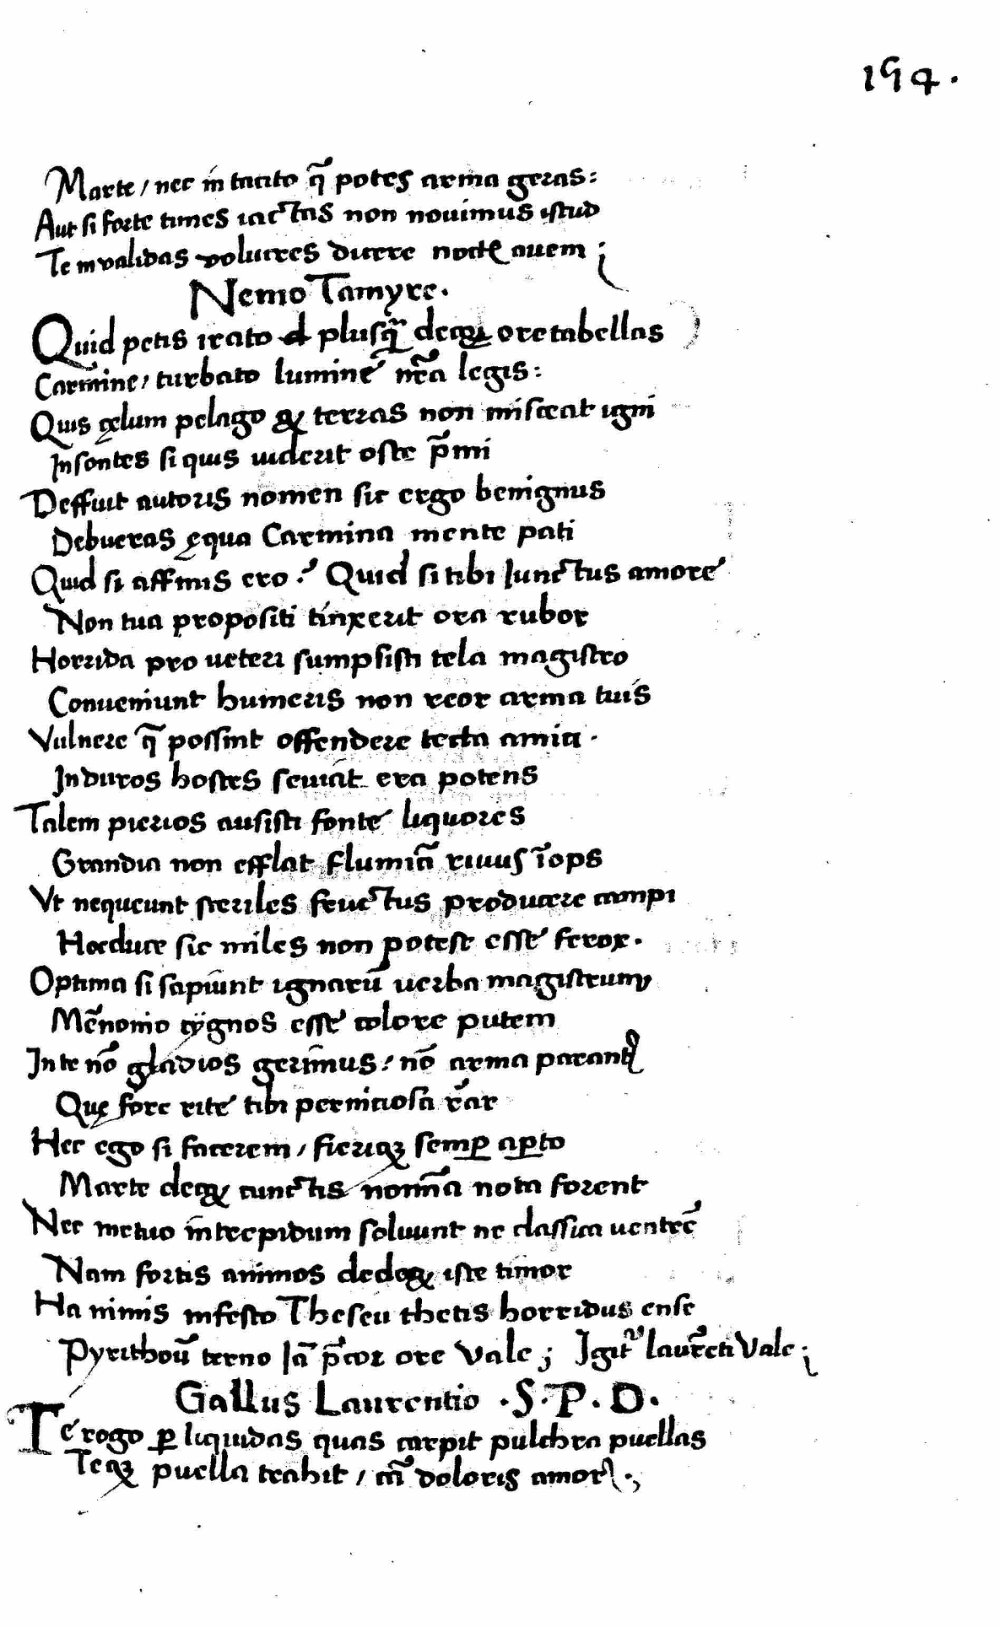 194.
Marte / nec in tacito q̃ potes arma geras:
Aut si forte times iactas non nouimus istud
Te in validas volucres ducere noctꝭ auem ;
Nemo Tamyre.
Quid petis irato plusq̃ deq̃ ore tabellas
Carmine / turbato lumine nr̃a legis:
Quis cęlum pelago & terras non misceat igni
Insontes si quis uiderit oste p̃mi
Deffuit autoris nomen sic ergo benignus
Debueras ęqua Carmina mente pati
Quid si affinis ero ·? Quid si tibi Iunctus amore
Non tua propositi tinxerit ora rubor
Horrida pro ueteri sumpsisti tela magistro
Conueniunt humeris non reor arma tuis
Vulnere q̃ possint offendere tecta amici ·
In duros hostes seuiãt era potens
Talem pierios ausisti fonte liquores
Grandia non efflat flumĩa riuus ĩops
Vt nequeunt steriles fructus producere campi
Hoc duce sic miles non potest esse ferox.
Optima si sapiũnt ignarũ uerba magistrum
Mẽnonio cygnos esse colore putem
In te nõ gladios gerimus: nõ arma parantꝰ
Quę fore rite tibi perniciosa rẽar
Hec ego si facerem / fieriqꝫ semꝑ aꝑto
Marte deqꝫ cunctis nomĩa nota forent
Nec metuo intrepidum soluunt ne classica uentrẽ
Nam fortis animos dedoqꝫ iste timor
Ha nimis infesto Theseu thetis horridus ense
Pyrithoũ terno Iã p̃cor ore Vale ; Igit̃ laurẽti Vale ;
Gallus Laurentio · S · P · D ·
Te rogo ꝑ liquidas quas carpit pulchra puellas
Teqꝫ puella trahit / cã doloris amor ·;